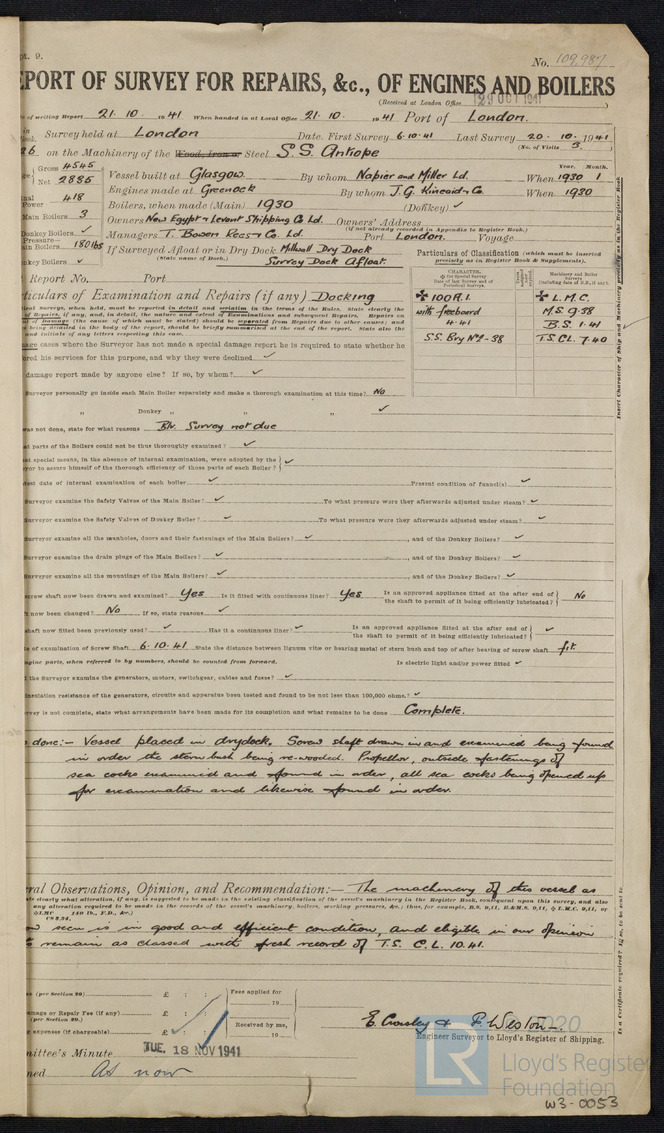 pt. 9.
No. 109,987
EPORT OF SURVEY FOR REPAIRS, &c., OF ENGINES AND BOILERS
(Received at London Office 29 OCT 1941)
of writing Report 21. 10. 1941 When handed in at Local Office 21. 10. 1941 Port of London.
Survey held at London Date. First Survey 6.10.41 Last Survey 20. 10. 1941
(No. of Visits 3.)
on the Machinery of the Wood, Iron or Steel S.S. Antiope
Gross 4545
Net 2885
Vessel built at Glasgow. By whom Napier and Miller Ld. When 1930 1
Year. Month.
Engines made at Greenock By whom J.G. Kincaid & Co. When 1930
Power 418
Boilers, when made (Main) 1930 (Donkey) ✓
Main Boilers 3
Owners New Egypt & Levant Shipping Co Ld. Owners' Address
(if not already recorded in Appendix to Register Book.)
Donkey Boilers ✓
Managers T. Bowen Rees & Co. Ld. Port London. Voyage
Pressure—
Main Boilers 180 lbs
If Surveyed Afloat or in Dry Dock Millwall Dry Dock
(State name of Dock.) Surrey Dock Afloat.
Donkey Boilers ✓
Particulars of Classification (which must be inserted
precisely as in Register Book & Supplements).
Report No. Port
ticulars of Examination and Repairs (if any) Docking
CHARACTER.
Machinery and Boiler
Surveys
✠ 100 A.1. ✠ L.M.C.
with freeboard M.S. 9.38
4.41 B.S. 1.41
S.S. Bry No2-38 T.S. CL. 7.40
Insert Character of Ship and Machinery precisely as in the Register Book
cases where the Surveyor has not made a special damage report he is required to state whether he
ered his services for this purpose, and why they were declined ✓
damage report made by anyone else? If so, by whom? ✓
Surveyor personally go inside each Main Boiler separately and make a thorough examination at this time? No
„ Donkey „ „ „ ✓
was not done, state for what reasons Blr. Survey not due
parts of the Boilers could not be thus thoroughly examined? ✓
special means, in the absence of internal examination, were adopted by the
yor to assure himself of the thorough efficiency of those parts of each Boiler? ✓
test date of internal examination of each boiler ✓ Present condition of funnel(s) ✓
Surveyor examine the Safety Valves of the Main Boiler? ✓ To what pressure were they afterwards adjusted under steam? ✓
Surveyor examine the Safety Valves of Donkey Boiler? ✓ To what pressure were they afterwards adjusted under steam? ✓
Surveyor examine all the manholes, doors and their fastenings of the Main Boilers? ✓, and of the Donkey Boilers? ✓
Surveyor examine the drain plugs of the Main Boilers? ✓, and of the Donkey Boilers? ✓
Surveyor examine all the mountings of the Main Boilers? ✓, and of the Donkey Boilers? ✓
screw shaft now been drawn and examined? Yes Is it fitted with continuous liner? Yes Is an approved appliance fitted at the after end of
the shaft to permit of it being efficiently lubricated? No
now been changed? No If so, state reasons ✓
shaft now fitted been previously used? ✓ Has it a continuous liner? ✓ Is an approved appliance fitted at the after end of
the shaft to permit of it being efficiently lubricated? ✓
of examination of Screw Shaft 6.10.41 State the distance between lignum vitæ or bearing metal of stern bush and top of after bearing of screw shaft fit.
ngine parts, when referred to by numbers, should be counted from forward. Is electric light and/or power fitted ✓
the Surveyor examine the generators, motors, switchgear, cables and fuses? ✓
resistance of the generators, circuits and apparatus been tested and found to be not less than 100,000 ohms? ✓
urvey is not complete, state what arrangements have been made for its completion and what remains to be done Complete.
done:— Vessel placed in drydock. Screw shaft drawn in and examined being found
in order the stern bush being re-wooded. Propellor, outside fastenings of
sea cocks examined and found in order, all sea cocks being opened up
for examination and likewise found in order.
ral Observations, Opinion, and Recommendation:— The machinery of this vessel as
now seen is in good and efficient condition, and eligible in our opinion
remain as classed with fresh record of T.S. C.L. 10.41.
Is a Certificate required? If so, to be sent to
(per Section 29) £ : : Fees applied for
19
amage or Repair Fee (if any) £ : :
(per Section 29.)
Received by me,
expenses (if chargeable) £ : : 19
E. Crossley & P. Weston.
Engineer Surveyor to Lloyd's Register of Shipping.
mittee's Minute TUE. 18 NOV 1941
ned As now
LR
Lloyd's Register
Foundation
W3-0053